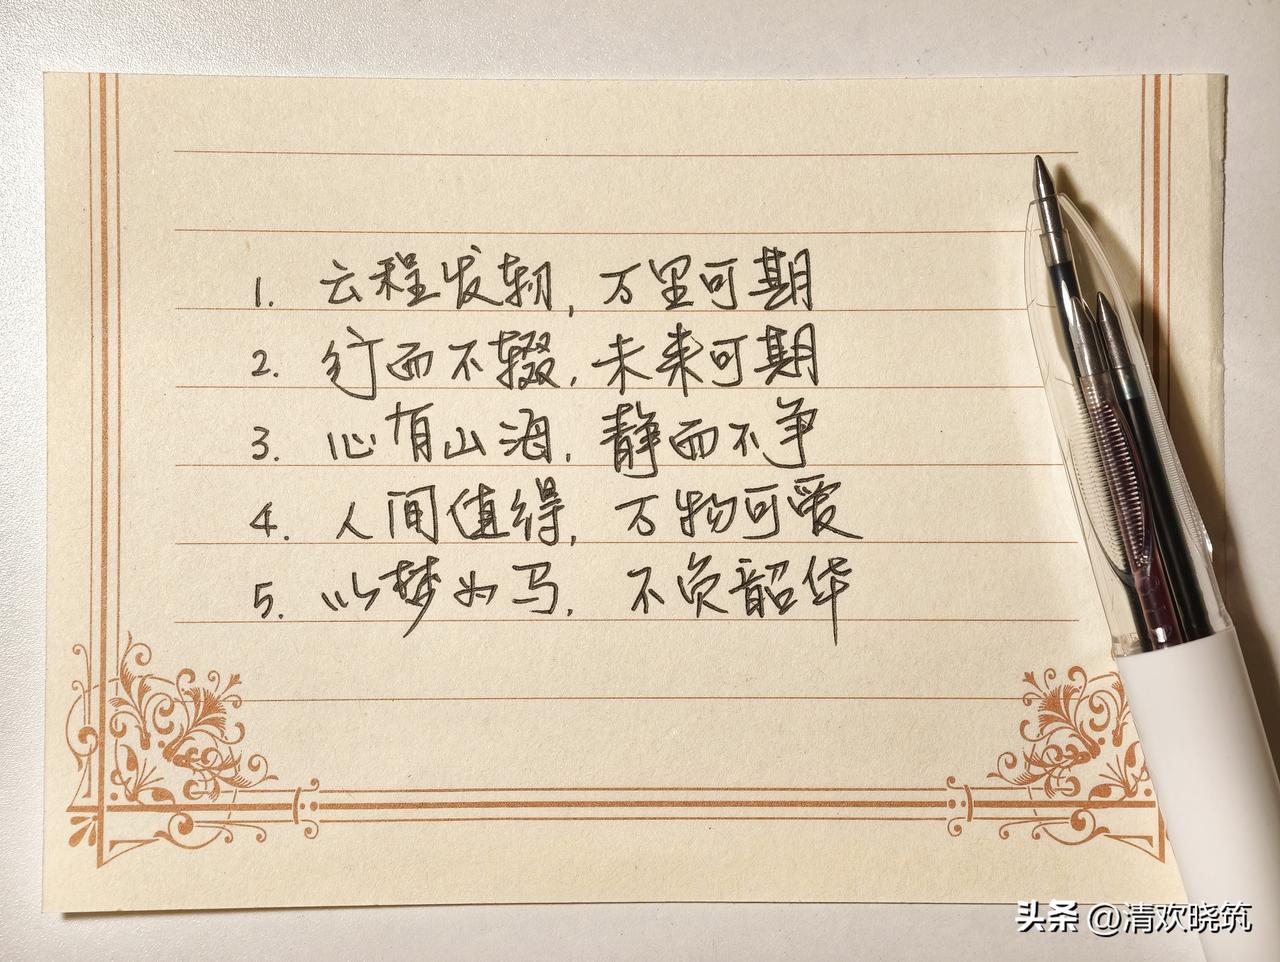 1. 云程发轫,万里可期
2. 行而不辍,未来可期
3. 心有山海,静而不争
4. 人间值得,万物可爱
5. 以梦为马,不负韶华
头条 @清欢晓筑